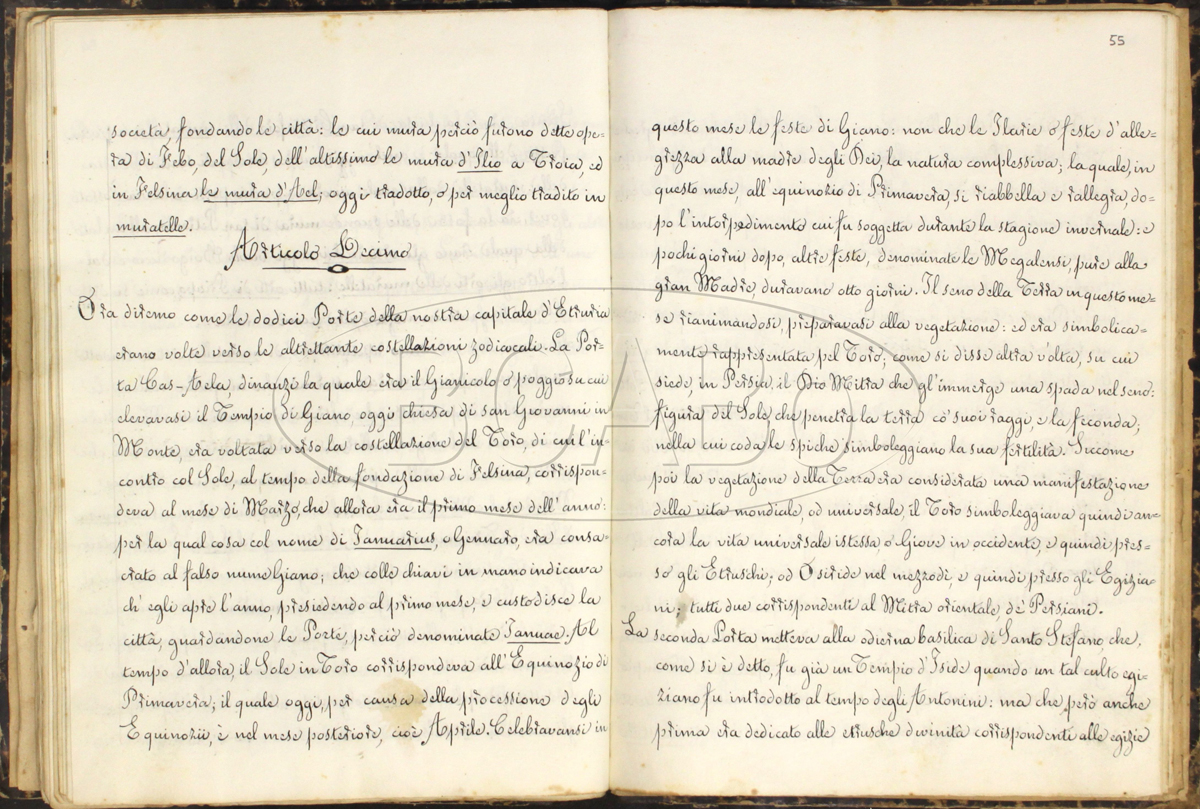 società, fondando le città: le cui mura perciò furono dette ope=
ra di Febo, del Sole, dell'altissimo le mura d'Ilio a Troia, ed
in Felsina le mura d'Ael; oggi tradotto, o per meglio tradito in
muratelle.
Articolo Decimo
Ora diremo come le dodici Porte della nostra capitale d'Etruria
erano volte verso le altrettante costellazioni zodiacali. La Por=
ta Cas-Aela, dinanzi la quale era il Gianicolo o poggio su cui
elevavasi il Tempio di Giano, oggi chiesa di san Giovanni in
Monte, era voltata verso la costellazione del Toro, di cui l'in=
contro col Sole, al tempo della fondazione di Felsina, corrispon=
deva al mese di Marzo, che allora era il primo mese dell'anno:
per la qual cosa col nome di Ianuarius, o Gennaro, era consa=
crato al falso nume Giano; che colle chiavi in mano indicava
ch'egli apre l'anno, presiedendo al primo mese, e custodisce la
città, guardandone le Porte, perciò denominate Ianuae. Al
tempo d'allora, il Sole in Toro corrispondeva all'Equinozio di
Primavera; il quale oggi, per causa della processione degli
Equinozii, è nel mese posteriore, cioè Aprile. Celebravansi in
55
questo mese le feste di Giano: non che le Ilarie o feste d'alle=
grezza alla madre degli Dei, la natura complessiva; la quale, in
questo mese, all'equinozio di Primavera, si riabbella e rallegra, do=
po l'intorpedimento cui fu soggetta durante la stagione invernale: e
pochi giorni dopo, altre feste, denominate le Megalensi, pure alla
gran Madre, duravano otto giorni. Il seno della Terra in questo me=
se rianimandosi, preparavasi alla vegetazione: ed era simbolica=
mente rappresentata pel Toro; come si disse altra volta, su cui
siede, in Persia, il Dio Mitra che gl'immerge una spada nel seno:
figura del Sole che penetra la terra co' suoi raggi, e la feconda;
nella cui coda le spiche simboleggiano la sua fertilità. Siccome
poi la vegetazione della Terra era considerata una manifestazione
della vita mondiale, od universale, il Toro simboleggiava quindi an=
cora la vita universale istessa, o Giove in occidente, e quindi pres=
so gli Etruschi; od Osiride nel mezzodì, e quindi presso gli Egizia=
ni; tutti due corrispondenti al Mitra orientale, de' Persiani.
La seconda Porta metteva alla odierna basilica di Santo Stefano, che,
come si è detto, fu già un Tempio d'Iside quando un tal culto egi=
ziano fu introdotto al tempo degli Antonini: ma che però anche
prima era dedicato alle etrusche divinità corrispondenti alle egizie
BCABo